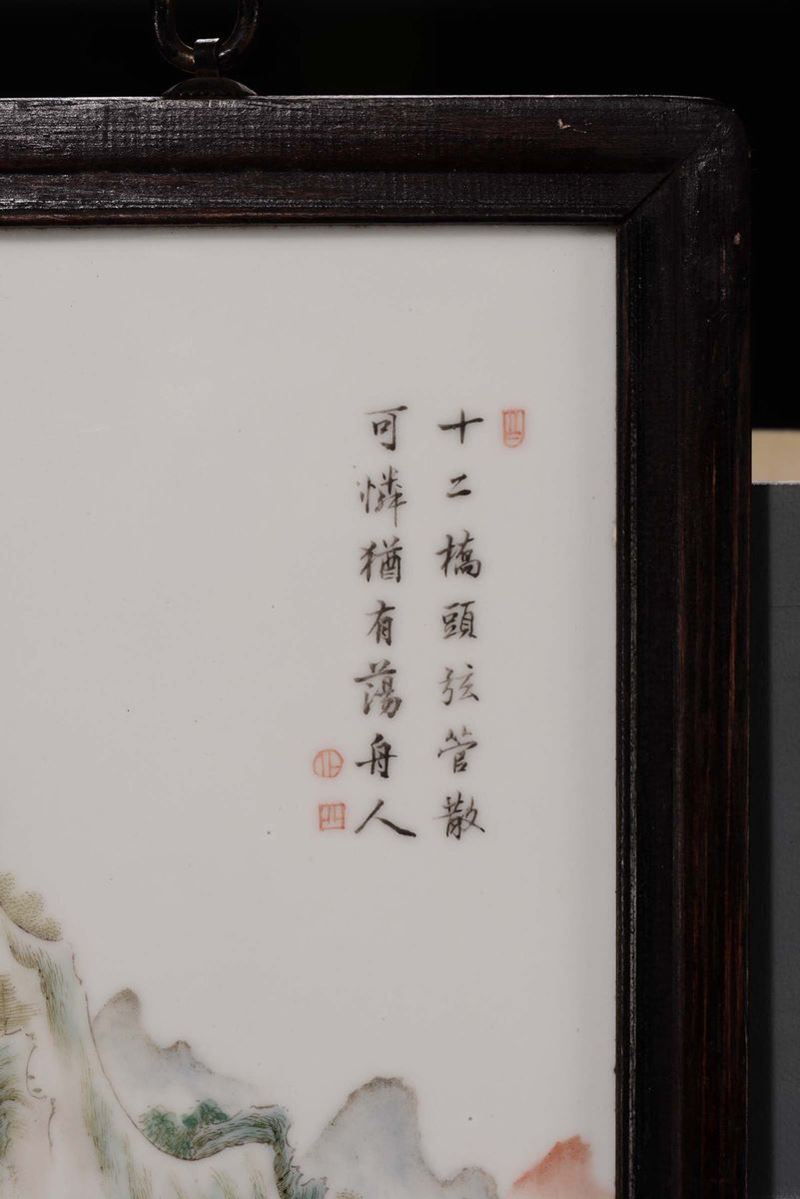 十二橋頭弦管散
可憐猶有蕩舟人